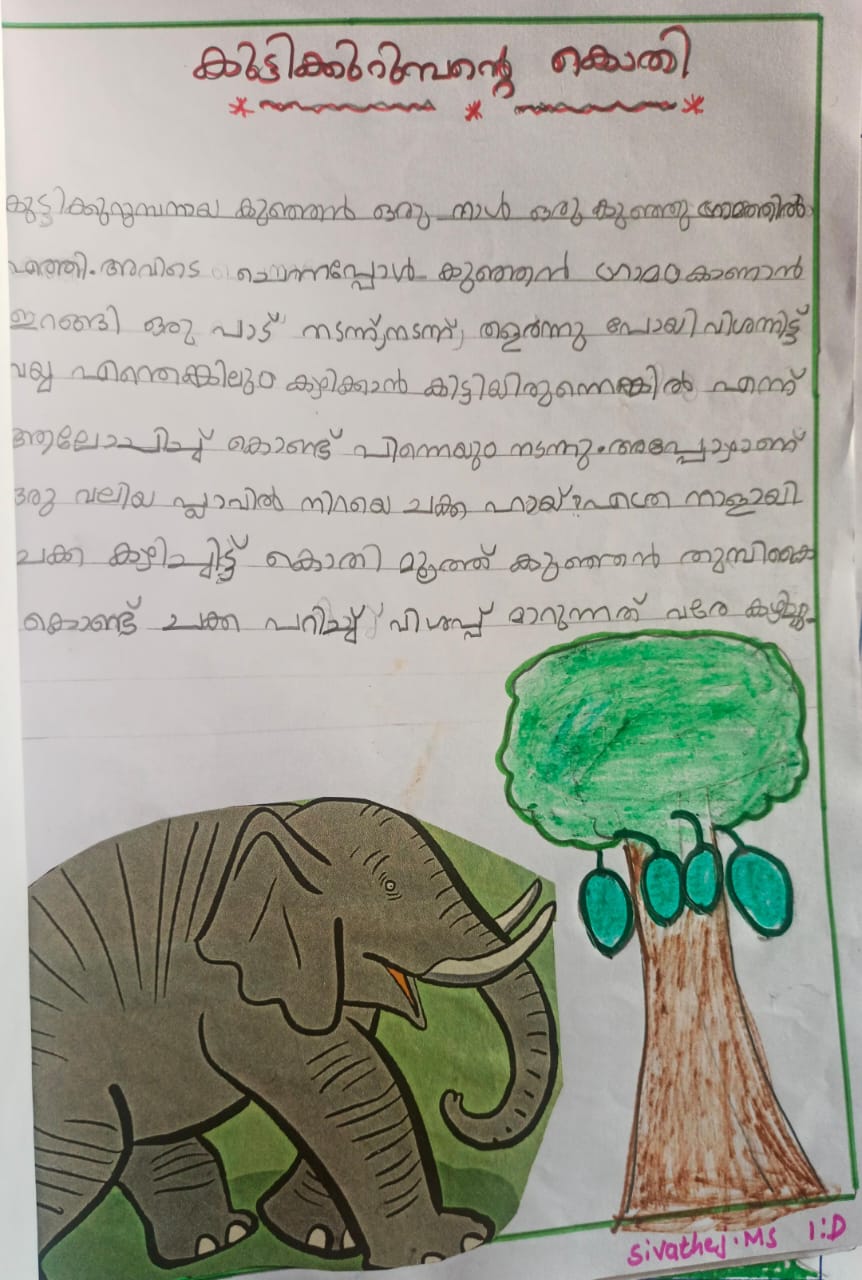 കുട്ടിക്കുറുമ്പന്റെ കൊതി
കുട്ടിക്കുറുമ്പനായ കുഞ്ഞൻ ഒരു നാൾ ഒരു കുഞ്ഞു ഗ്രാമത്തിൽ
എത്തി. അവിടെ ചെന്നപ്പോൾ കുഞ്ഞൻ ഗ്രാമം കാണാൻ
ഇറങ്ങി ഒരു പാട് നടന്ന്, നടന്ന്, തളർന്നു പോയി വിശന്നിട്ട്
വയ്യ എന്തെങ്കിലും കഴിക്കാൻ കിട്ടിയിരുന്നെങ്കിൽ എന്ന്
ആലോചിച്ച് കൊണ്ട് പിന്നെയും നടന്നു. അപ്പോഴാണ്
ഒരു വലിയ പ്ലാവിൽ നിറയെ ചക്ക ഹായ്! എത്ര നാളായി
ചക്ക കഴിച്ചിട്ട് കൊതി മൂത്ത് കുഞ്ഞൻ തുമ്പികൈ
കൊണ്ട് ചക്ക പറിച്ച് വിശപ്പ് മാറുന്നത് വരേ കഴിച്ചു.
Sivathej. MS 1:D